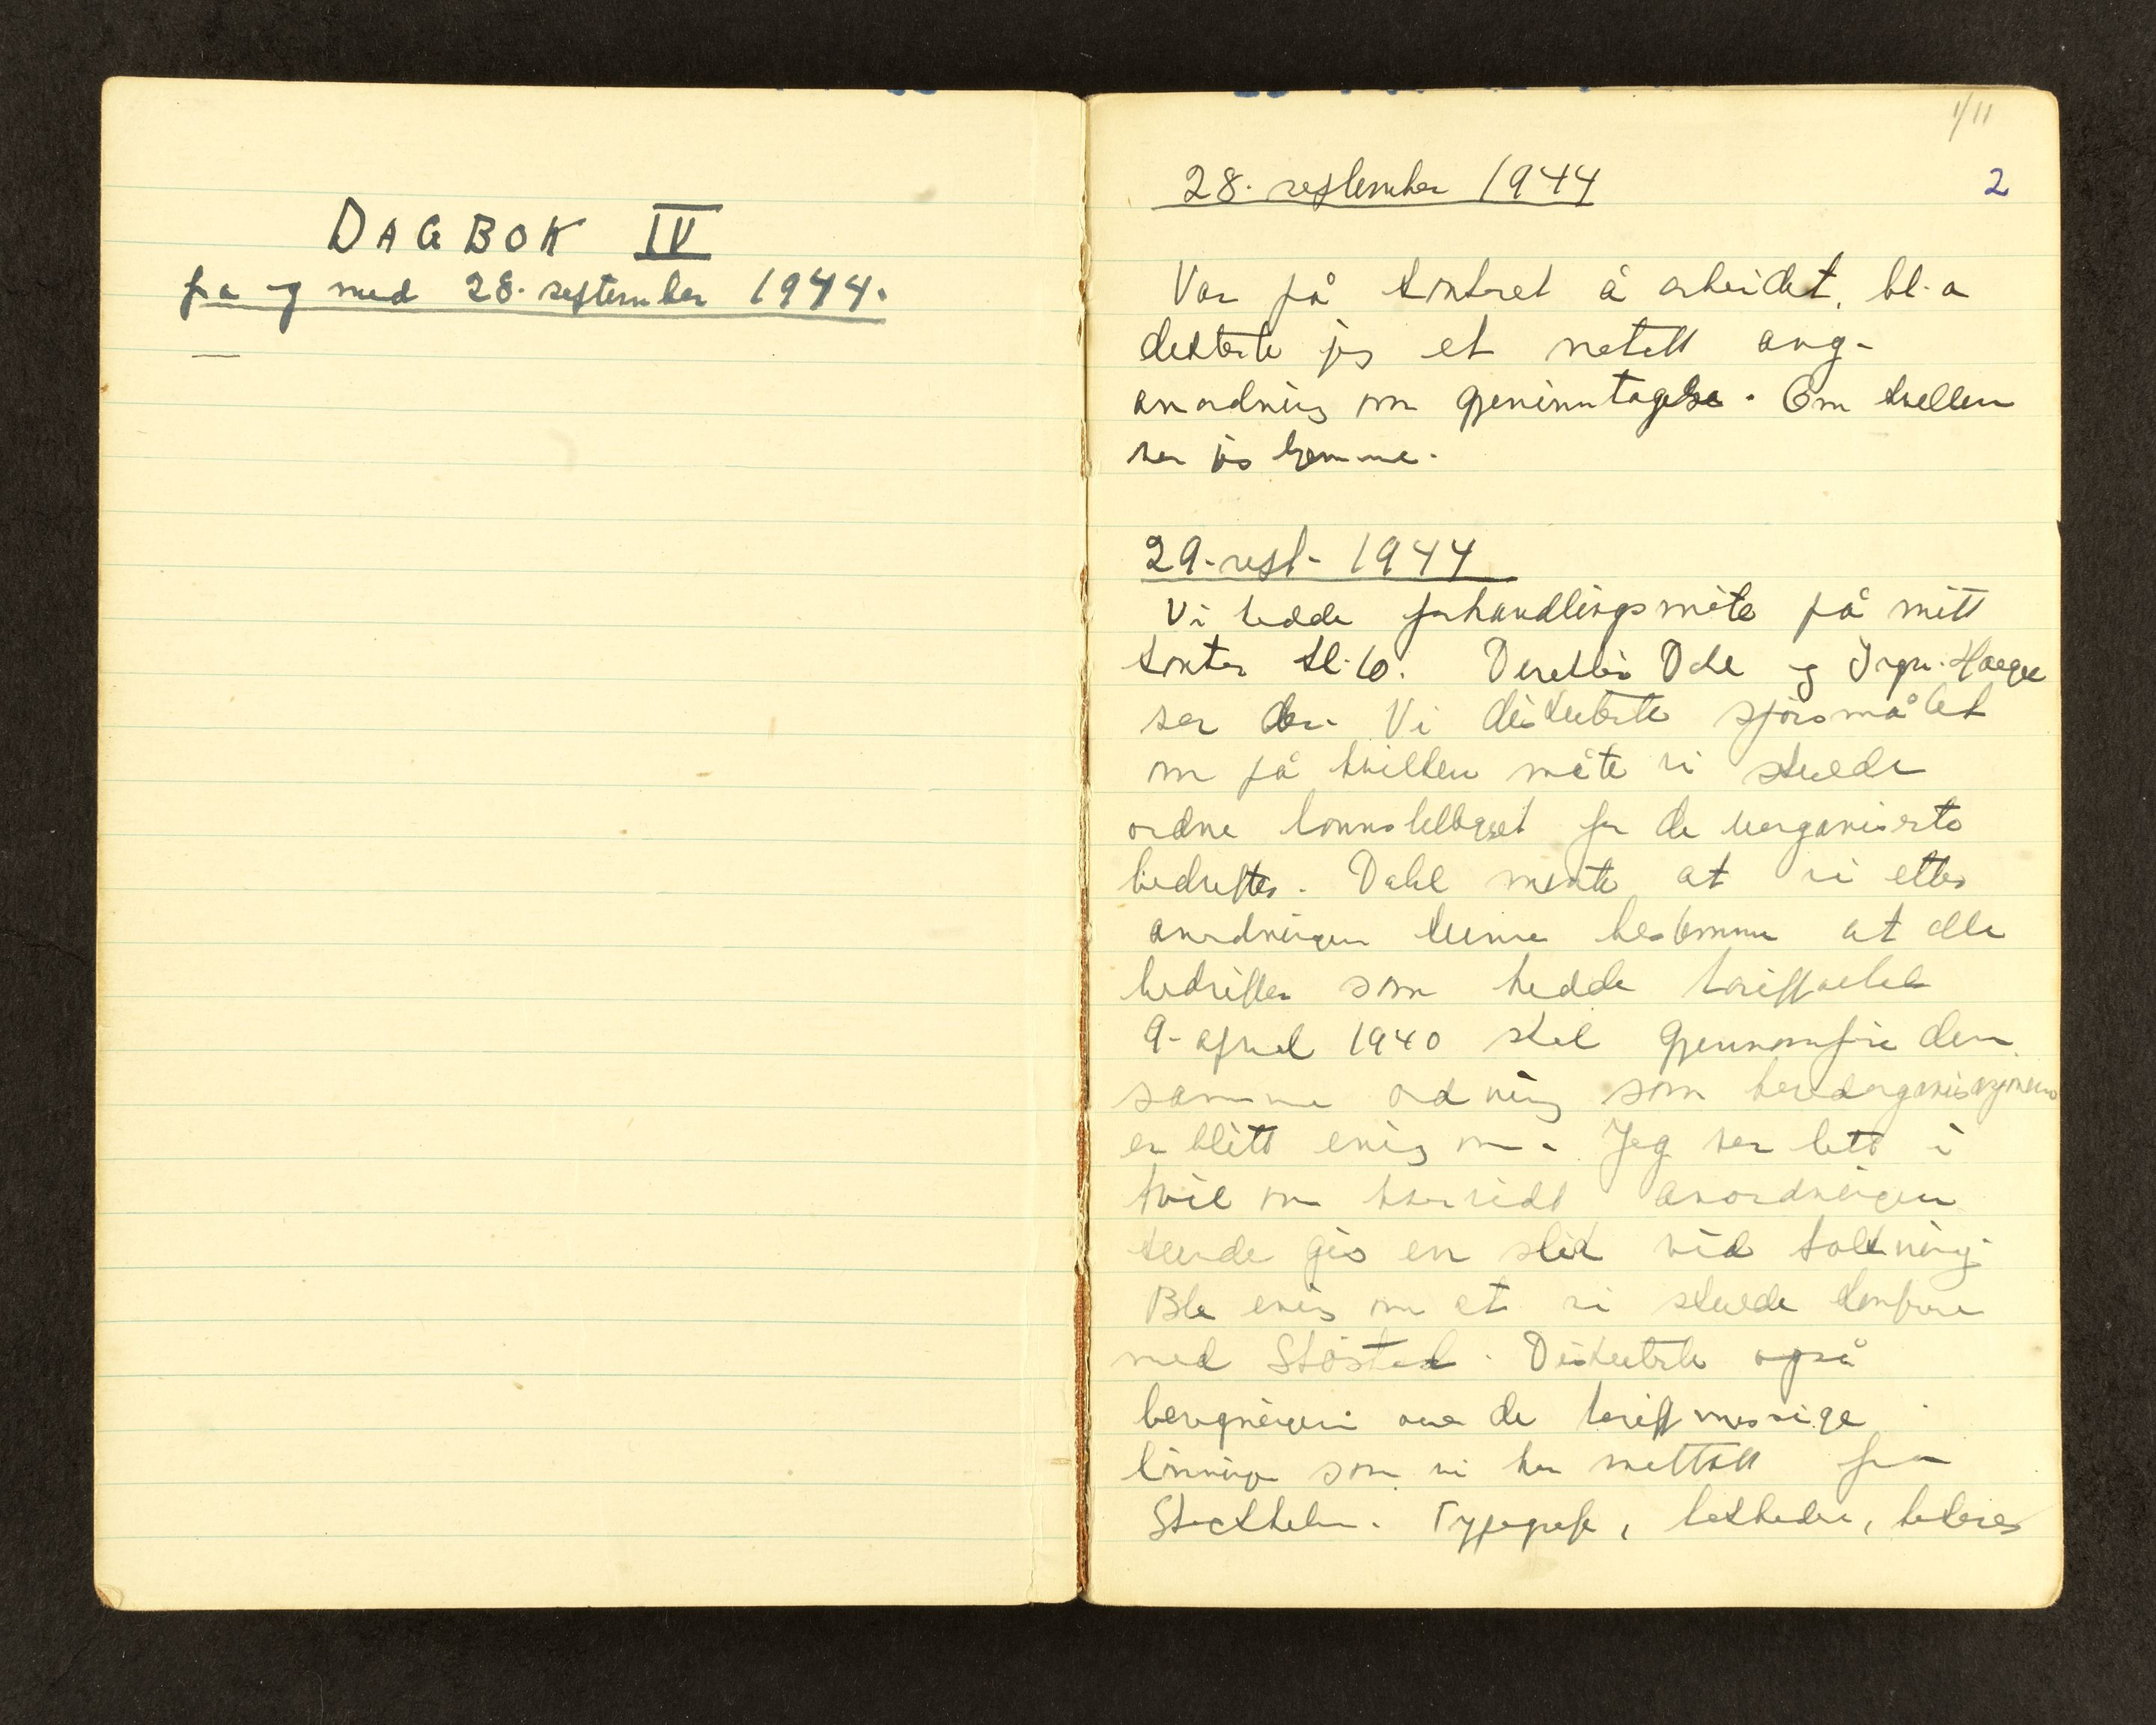 DAGBOK IV
fra og med 28. september 1944.
1/11
28. september 1944
2
Var på kontoret å arbeidet, bl.a
dikterte jeg et notatt ang.
anordning om gjeninntagelse. Om kvellen
var jeg hjemme.
29. sept. 1944
Vi hadde forhandlingsmöte på mitt
kontor kl. 10. Direktör Dahl og Ingv. Haugen
var der. Vi diskuterte spörsmålet
om på hvilken måte vi skulde
ordne lönnstillegget for de uorganiserte
bedrifter. Dahl mente at vi etter
anordningen kunne bestemme at alle
bedrifter som hadde tariff
9. april 1940 skal gjennomföre den
samme ordning som hovedorganisasjonene
er blitt enig om. Jeg var litt i
tvil om hvorvidt anordningen
kunde gis en slik vid tolkning.
Ble enig om at vi skulde konferere
med Stöstad. Diskuterte også
beregningen over de tariffmessige
lönninger som vi har mottatt fra
Stockholm. Typografer,